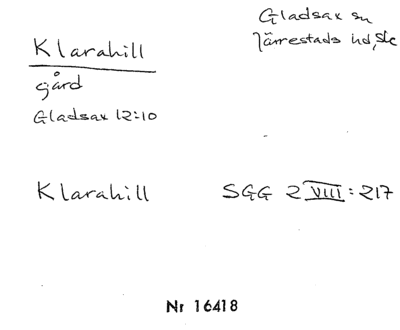 Gladsax sn
Järrestads hd, Sk
Klarahill
gård
Gladsax 12:10
Klarahill SGG 2 VIII: 217
Nr 16418